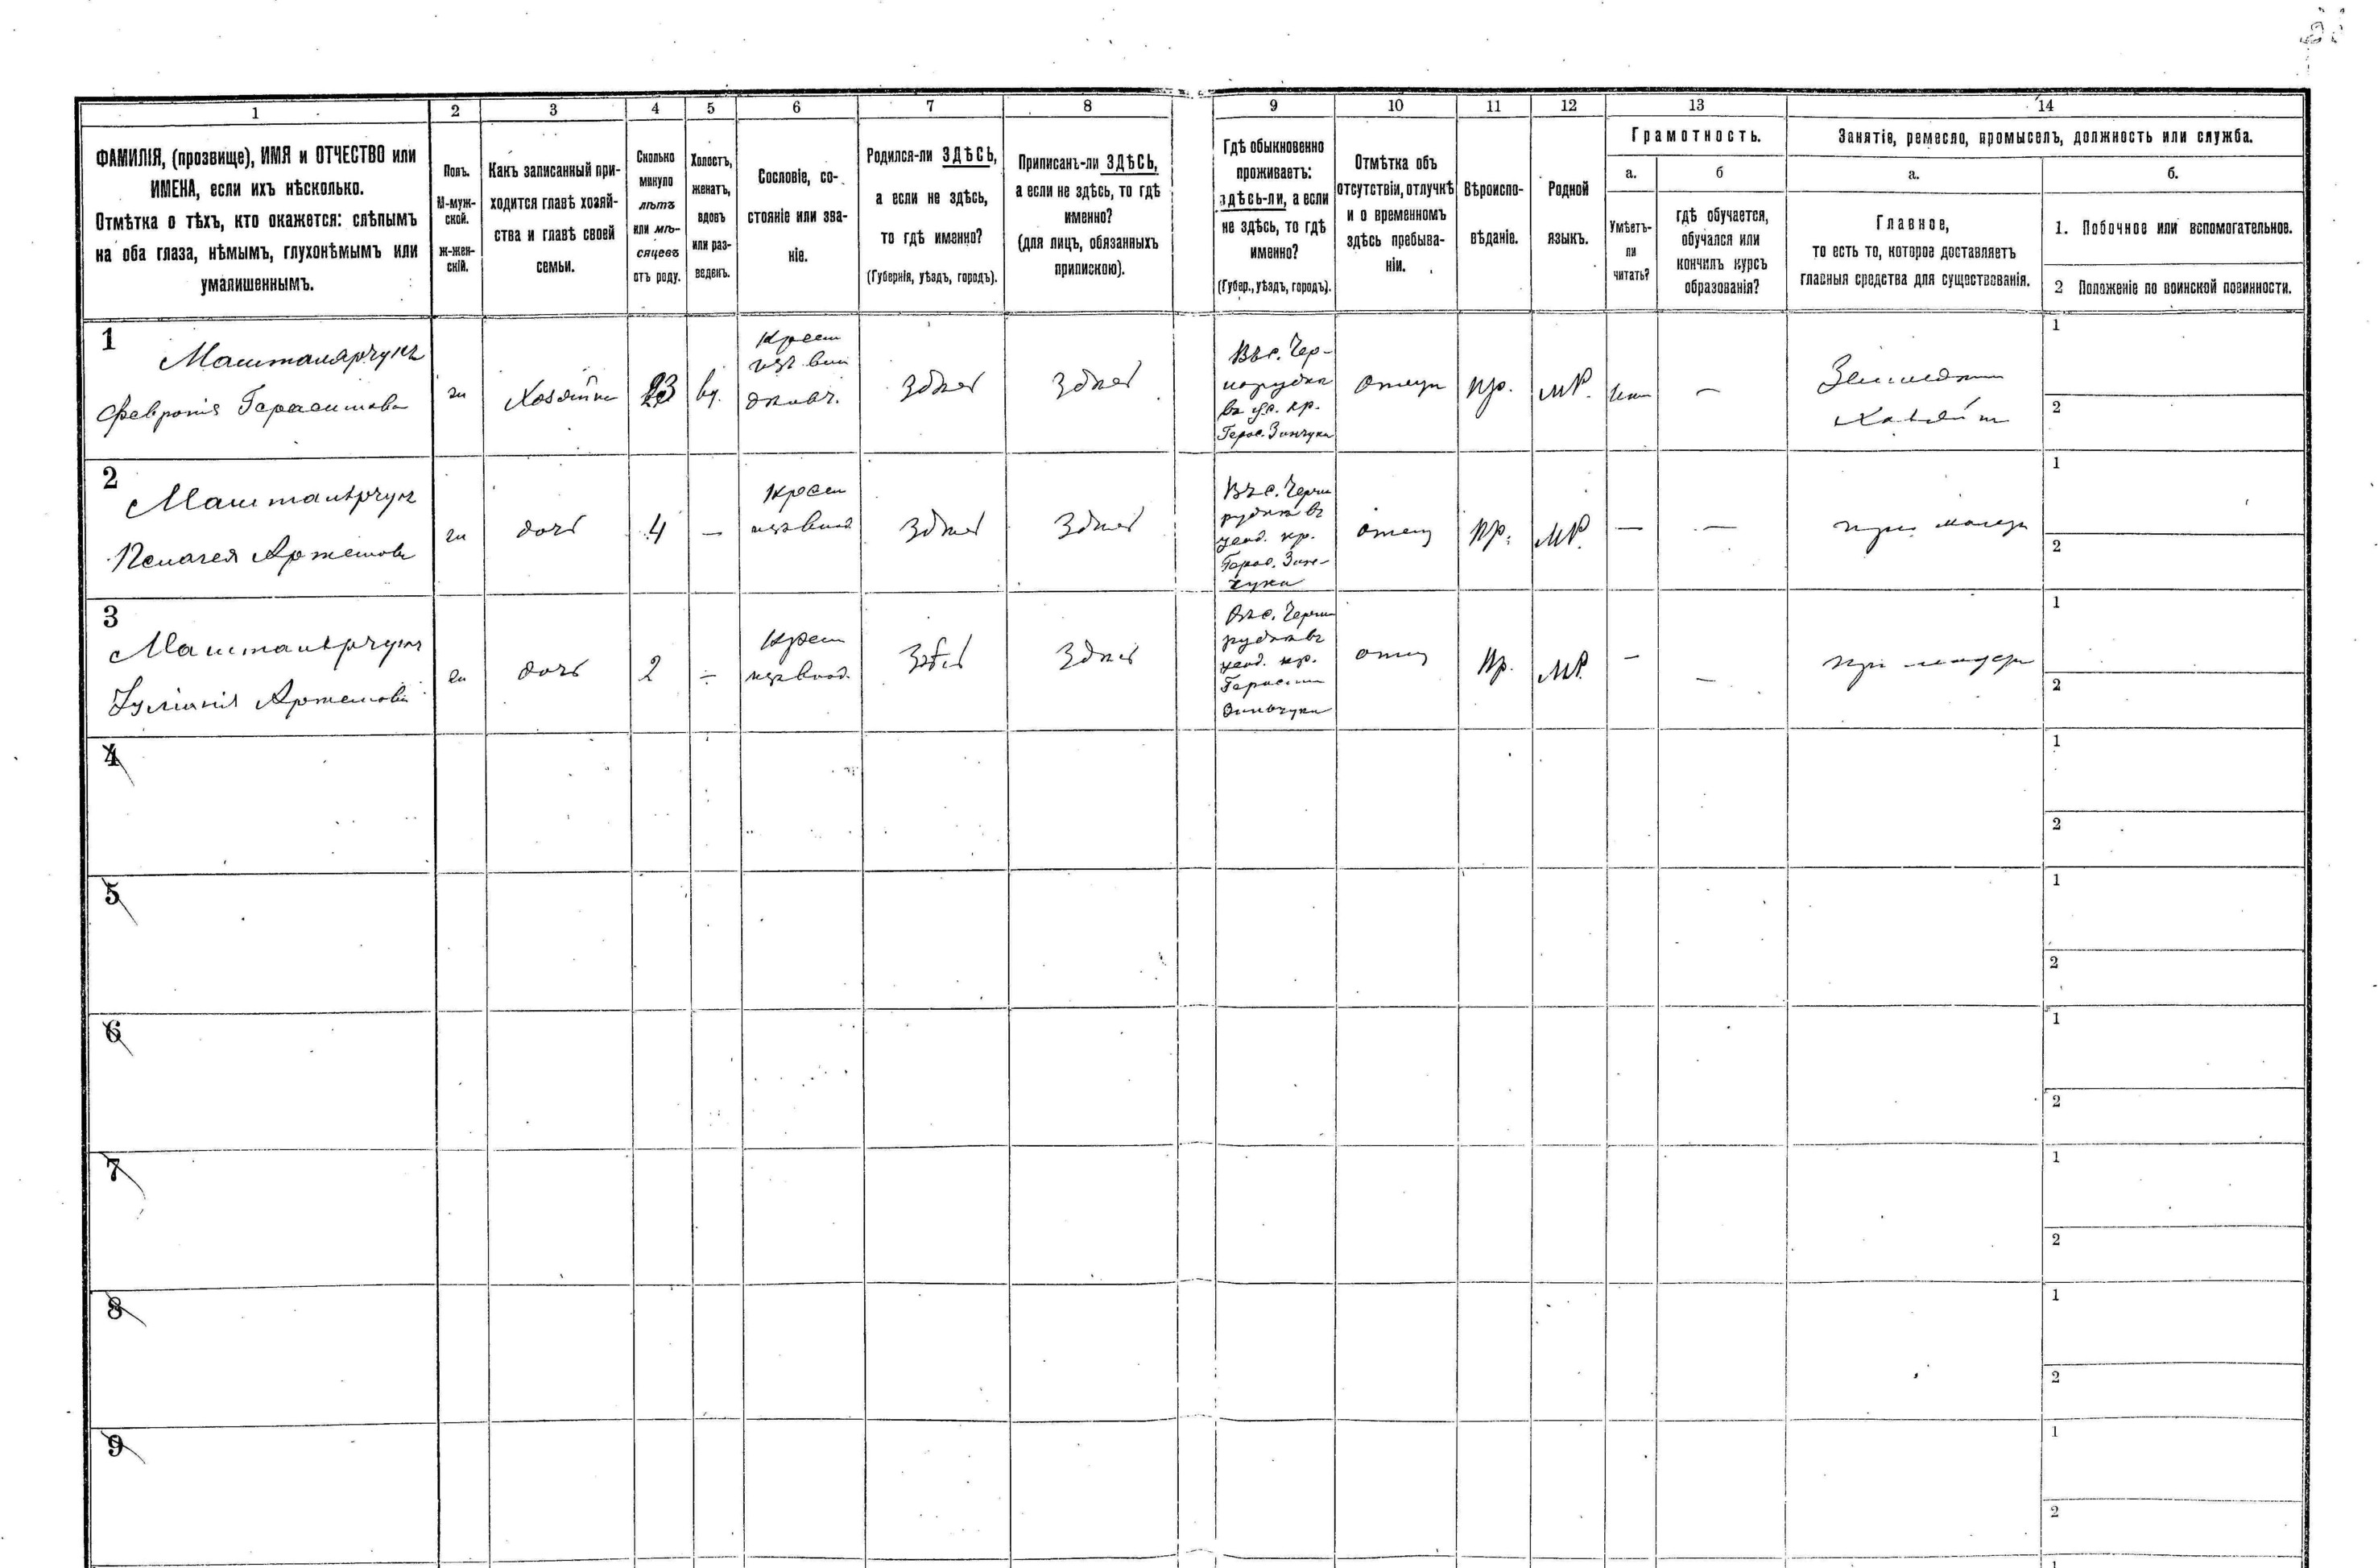 1 2 3 4 5 6 7 8 9 10 11 12 13 14
ФАМИЛІЯ, (прозвище), ИМЯ и ОТЧЕСТВО или
ИМЕНА, если ихъ нѣсколько.
Отмѣтка о тѣхъ, кто окажется: слѣпымъ
на оба глаза, нѣмымъ, глухонѣмымъ или
умалишеннымъ.
Полъ.
М-муж-
ской.
ж-жен-
скій.
Какъ записанный при-
ходится главѣ хозяй-
ства и главѣ своей
семьи.
Сколько
минуло
лѣтъ
или мѣ-
сяцевъ
отъ роду.
Холостъ,
женатъ,
вдовъ
или раз-
веденъ.
Сословіе, со-
стояніе или зва-
ніе.
Родился-ли ЗДѢСЬ,
а если не здѣсь,
то гдѣ именно?
(Губернія, уѣздъ, городъ).
Приписанъ-ли ЗДѢСЬ,
а если не здѣсь, то гдѣ
именно?
(для лицъ, обязанныхъ
припискою).
Гдѣ обыкновенно
проживаетъ:
здѣсь-ли, а если
не здѣсь, то гдѣ
именно?
(Губер., уѣздъ, городъ).
Отмѣтка объ
отсутствіи, отлучкѣ
и о временномъ
здѣсь пребыва-
ніи.
Вѣроиспо-
вѣданіе.
Родной
языкъ.
Грамотность.
а.
Умѣетъ-
ли
читать?
б
гдѣ обучается,
обучался или
кончилъ курсъ
образованія?
Занятіе, ремесло, промыселъ, должность или служба.
а.
Главное,
то есть то, которое доставляетъ
главныя средства для существованія.
б.
1. Побочное или вспомогательное.
2 Положеніе по воинской повинности.
1
Машталярчукъ
Февронія Герасимова
ж
Хозяйка
23
вд.
Крест
изъ вла
дѣльч.
Здѣсь
Здѣсь
Въ с. Чер-
норудка
въ ус. кр.
Герас. Зинчука
Отлуч
Пр.
МР.
Нѣт
—
Земледѣл
Хозяйк
1
2
2
Машталярчук
Пелагея Артемова
ж
дочь
4
—
Крест
изъ влад
Здѣсь
Здѣсь
Въ с. Черно
рудка въ
усад. кр.
Герас. Зин-
чука
отлуч
Пр.
МР.
—
—
при матери
1
2
3
Машталярчукъ
Іуліанія Артемова
ж
дочь
2
—
Крест
изъ влад.
Здѣсь
Здѣсь
Въ с. Черно
рудка въ
усад. кр.
Герасим
Зинчука
отлуч
Пр.
МР.
—
—
при матери
1
2
4
1
2
5
1
2
6
1
2
7
1
2
8
1
2
9
1
2
1